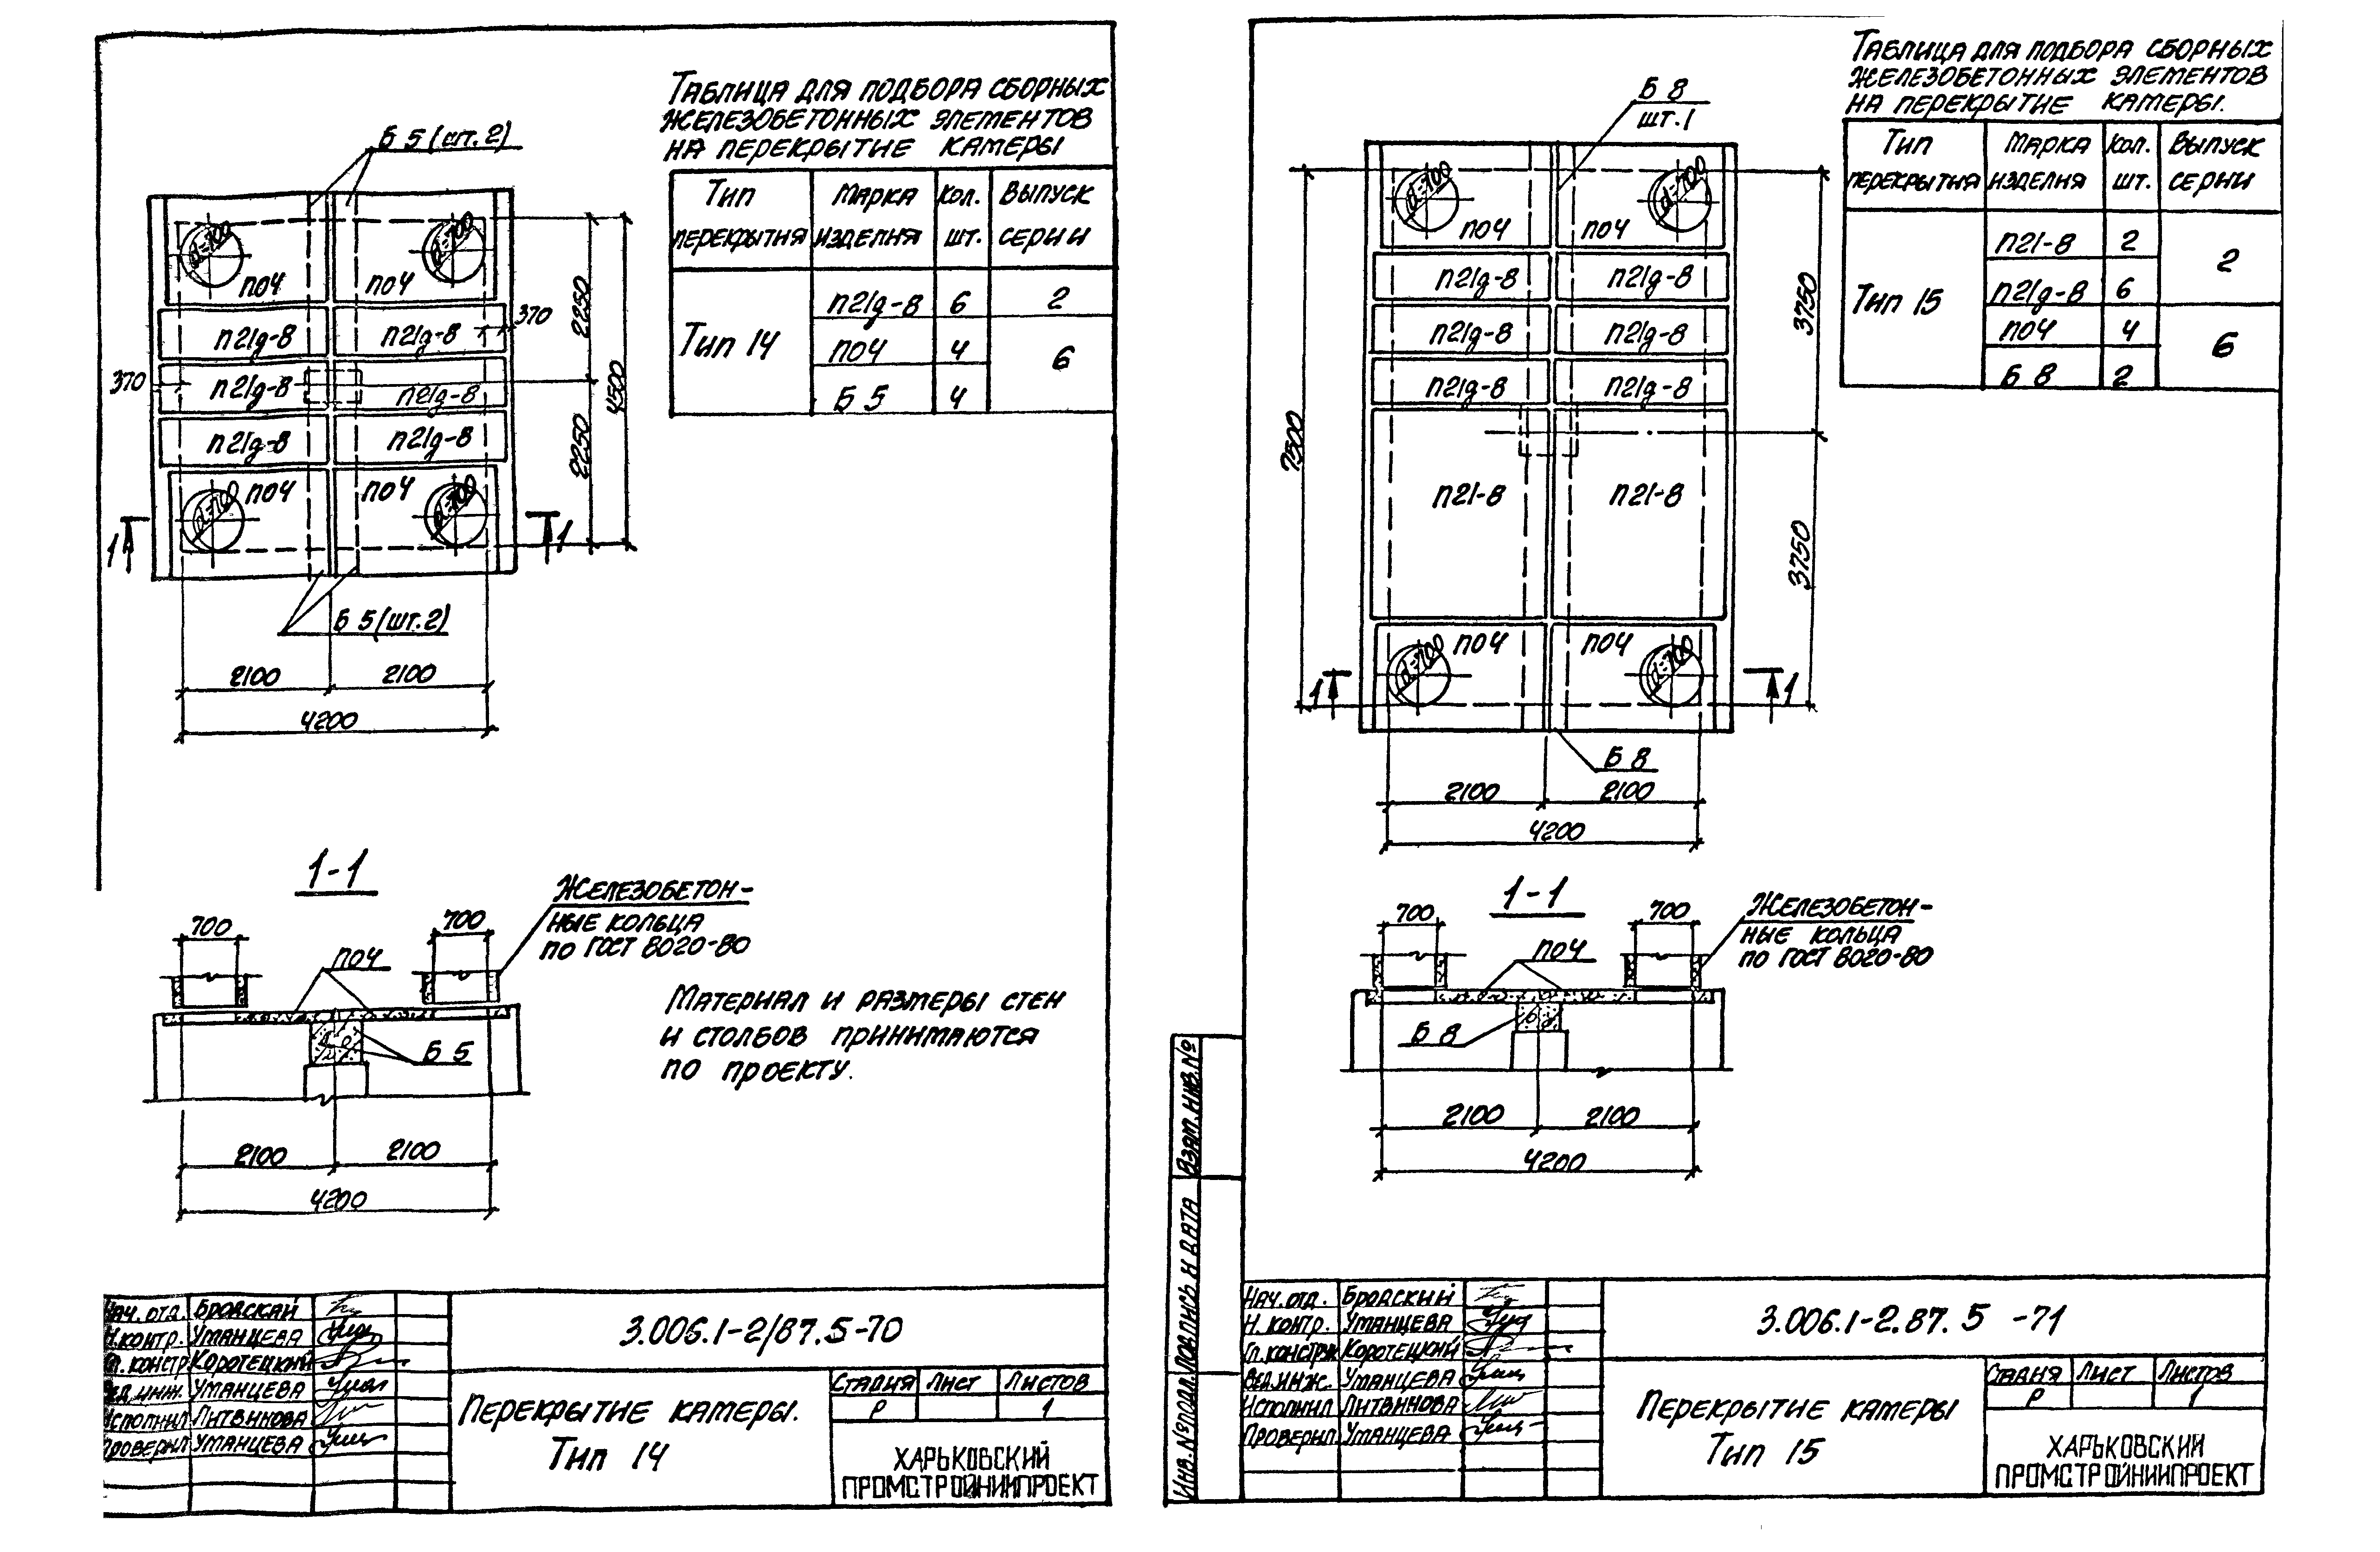 Таблица для подбора сборных
железобетонных элементов
на перекрытие камеры
Тип перекрытия Марка изделия Кол. шт. Выпуск серии
Тип 14
П21д-8 6 2
ПО4 4 6
Б 5 4
Б 5 (шт. 2)
d=700 d=700
ПО4 ПО4
П21д-8 П21д-8
370
370
П21д-8 П21д-8
П21д-8 П21д-8
ПО4 ПО4
d=700 d=700
2250
2250
4500
1 1
Б 5 (шт. 2)
2100 2100
4200
1-1
700 700
Железобетон-
ные кольца
по ГОСТ 8020-80
ПО4
Б 5
2100 2100
4200
Материал и размеры стен
и столбов принимаются
по проекту.
Нач. отд. Бродский
Н.контр. Уманцева
Гл. констр. Коротецкий
Вед.инж. Уманцева
Исполнил Литвинова
Проверил Уманцева
3.006.1-2/87.5-70
Перекрытие камеры.
Тип 14
Стадия Лист Листов
Р 1
ХАРЬКОВСКИЙ
ПРОМСТРОЙНИИПРОЕКТ
Таблица для подбора сборных
железобетонных элементов
на перекрытие камеры.
Тип перекрытия Марка изделия Кол. шт. Выпуск серии
Тип 15
П21-8 2 2
П21д-8 6
ПО4 4 6
Б 8 2
Б 8
шт. 1
d=700 d=700
ПО4 ПО4
П21д-8 П21д-8
П21д-8 П21д-8
П21д-8 П21д-8
П21-8 П21-8
ПО4 ПО4
d=700 d=700
7500
3750
3750
1 1
Б 8
2100 2100
4200
1-1
700 700
Железобетон-
ные кольца
по ГОСТ 8020-80
ПО4
Б 8
2100 2100
4200
Взам. инв. №
Подпись и дата
Инв. № подл.
Нач. отд. Бродский
Н. контр. Уманцева
Гл.конструк Коротецкий
Вед.инж. Уманцева
Исполнил Литвинова
Проверил Уманцева
3.006.1-2.87. 5 -71
Перекрытие камеры
Тип 15
Стадия Лист Листов
Р 1
ХАРЬКОВСКИЙ
ПРОМСТРОЙНИИПРОЕКТ